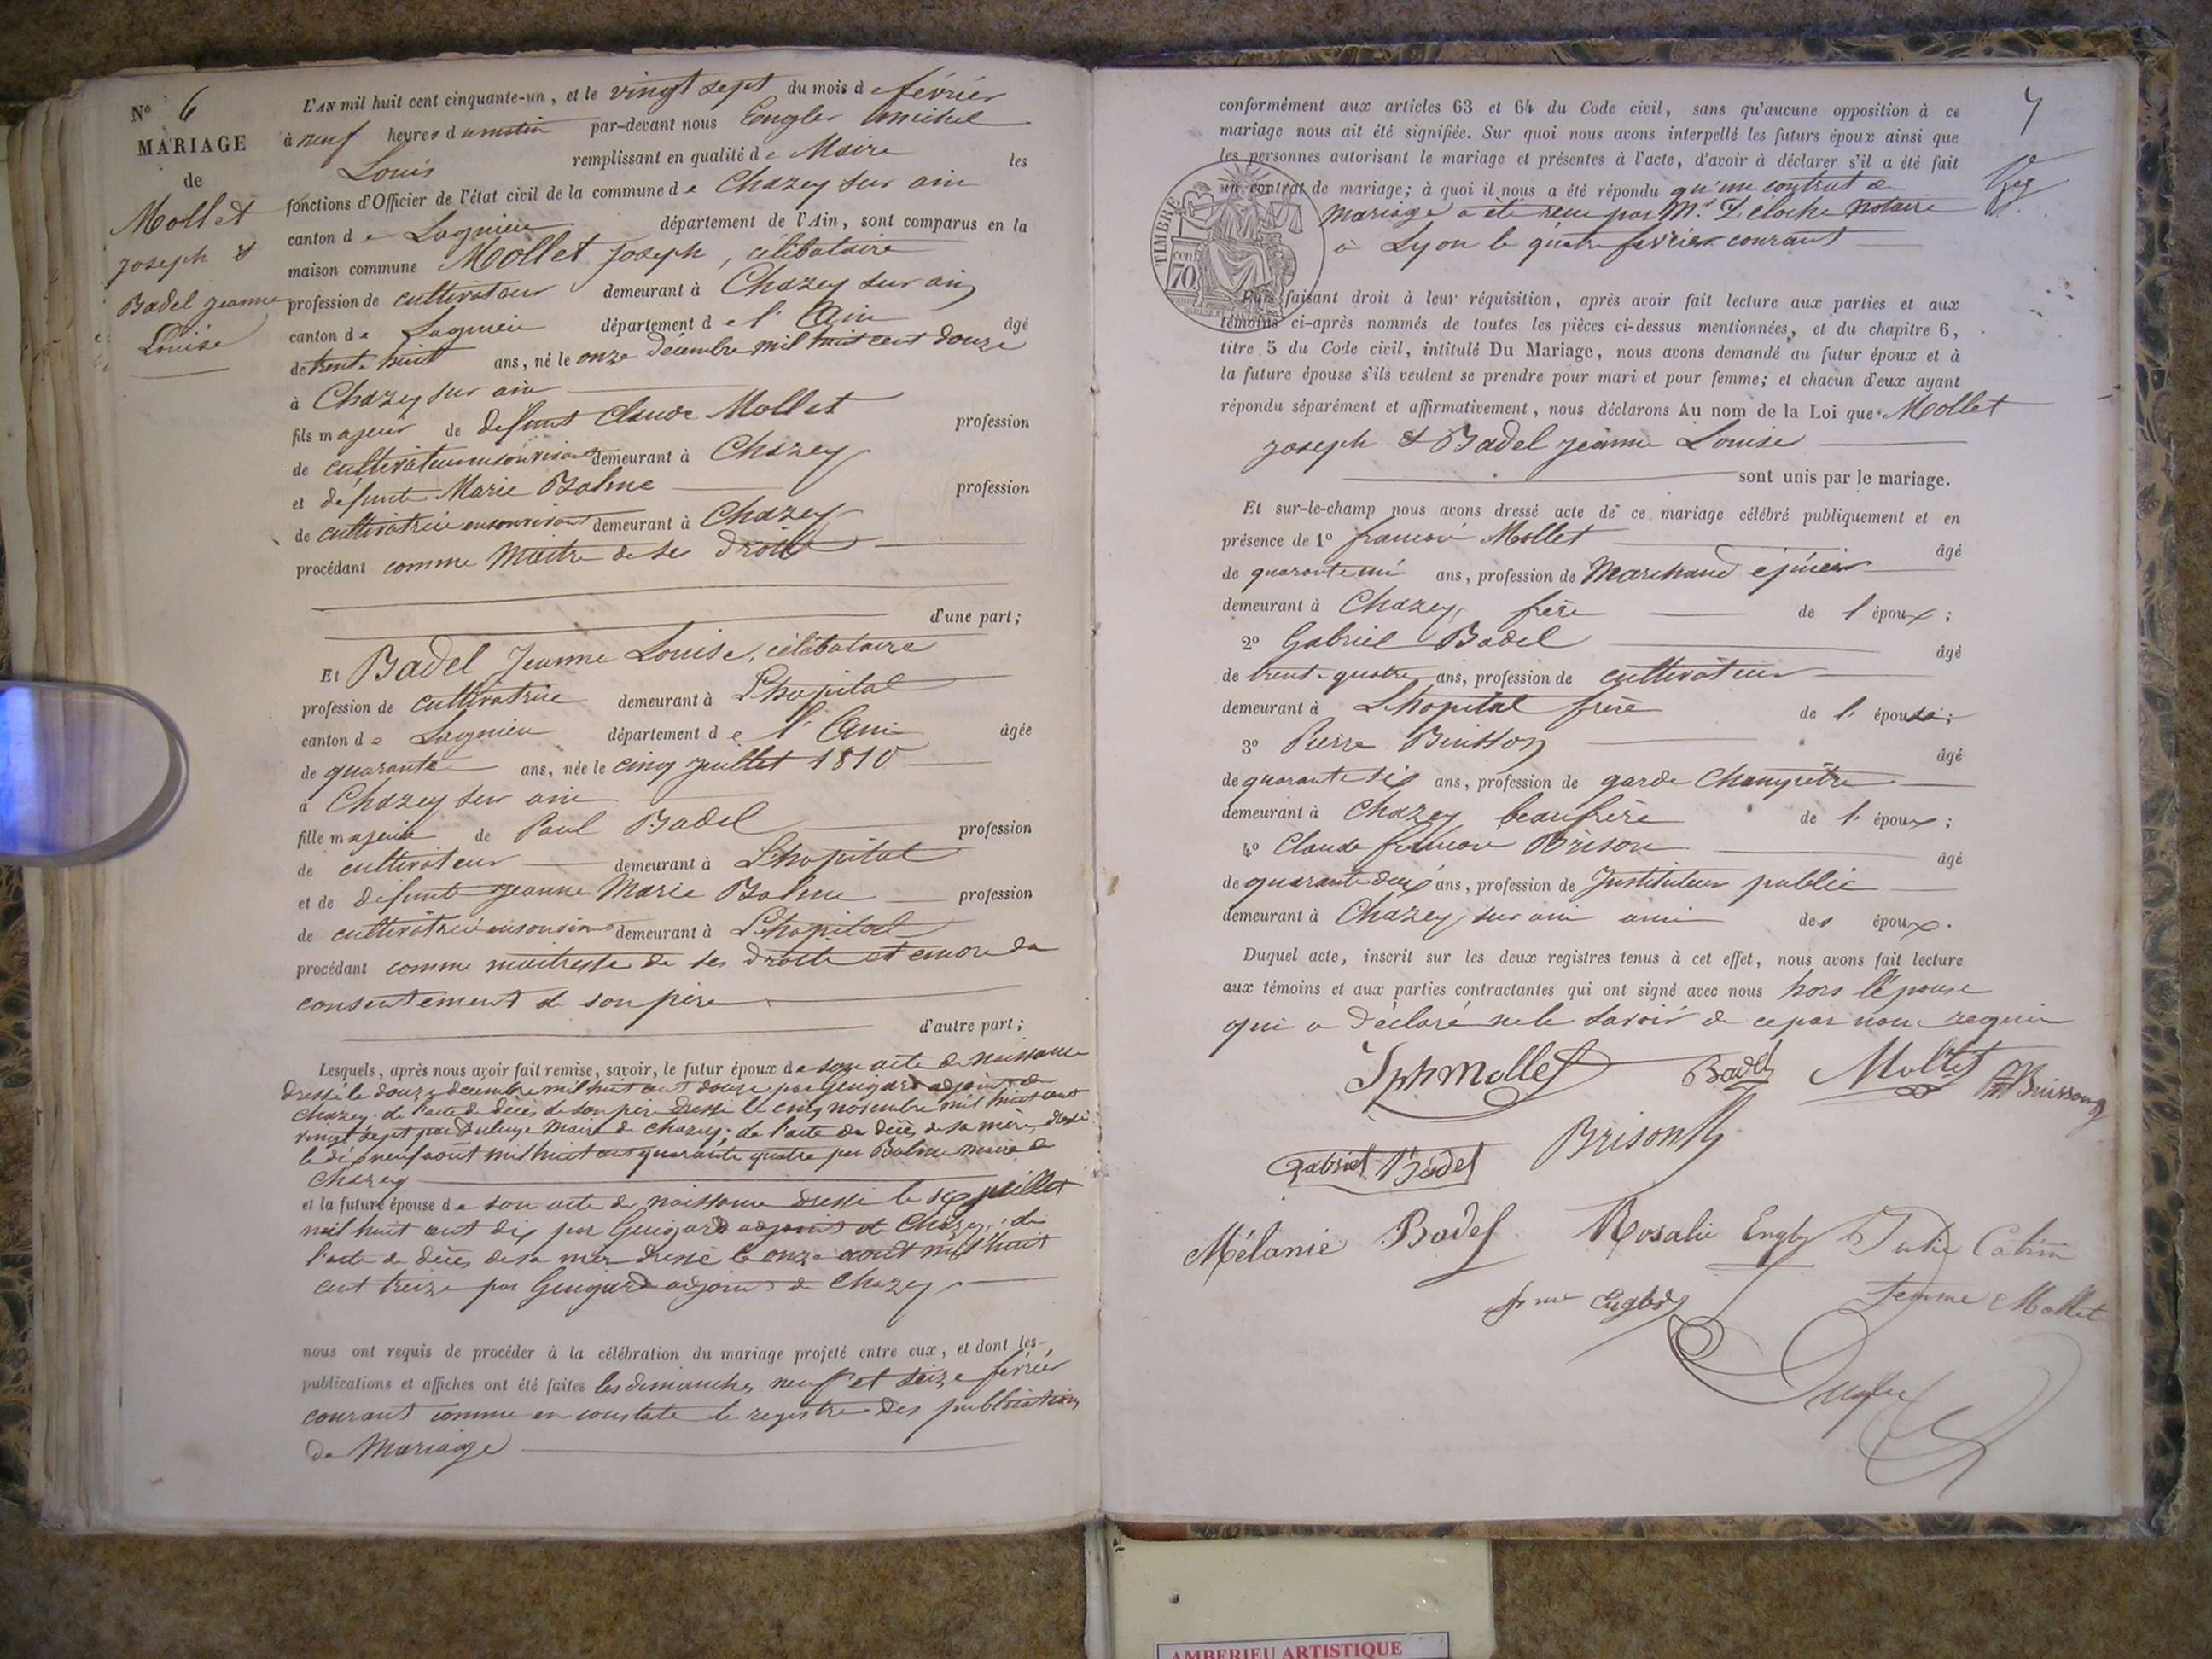 N° 6
MARIAGE
de
Mollet
Joseph &
Badel Jeanne
Louise
L'AN mil huit cent cinquante-un, et le vingt sept du mois de février
à neuf heures du matin par-devant nous Engler Amihel
Louis remplissant en qualité de Maire les
fonctions d'Officier de l'état civil de la commune de Chazey sur ain
canton de Lagnieu département de l'Ain, sont comparus en la
maison commune Mollet Joseph, célibataire
profession de cultivateur demeurant à Chazey sur ain
canton de Lagnieu département de l'Ain âgé
de trente huit ans, né le onze décembre mil huit cent douze
à Chazey sur ain
fils majeur de defunt Claude Mollet profession
de cultivateur en son vivant demeurant à Chazey
et défunte Marie Balme profession
de cultivatrice en son vivant demeurant à Chazey
procédant comme Maitre de ses droits
d'une part;
Et Badel Jeanne Louise, célibataire
profession de cultivatrice demeurant à L'hopital
canton de Lagnieu département de l'Ain âgée
de quarante ans, née le cinq juillet 1810
à Chazey sur ain
fille majeure de Paul Badel profession
de cultivateur demeurant à L'hopital
et de defunte Jeanne Marie Balme profession
de cultivatrice en son vivant demeurant à L'hopital
procédant comme maitresse de ses droits et encore du
consentement de son père
d'autre part;
Lesquels, après nous avoir fait remise, savoir, le futur époux de son acte de naissance
dressé le douze decembre mil huit cent douze par Guigard adjoint de
Chazey. de l'acte de décès de son père dressé le cinq novembre mil huit cent
vingt sept par Maire de Chazey; de l'acte de décès de sa mère, dressé
le dix neuf août mil huit cent quarante quatre par Balme maire de
Chazey
et la future épouse de son acte de naissance dressé le six juillet
mil huit cent dix par Guigard adjoint de Chazey; de
l'acte de décès de sa mère dressé le onze août mil huit
cent treize par Guigard adjoint de Chazey
nous ont requis de procéder à la célébration du mariage projeté entre eux, et dont les
publications et affiches ont été faites les dimanches neuf et seize février
courant comme en constate le registre des publications
de Mariage
7
conformément aux articles 63 et 64 du Code civil, sans qu'aucune opposition à ce
mariage nous ait été signifiée. Sur quoi nous avons interpellé les futurs époux ainsi que
les personnes autorisant le mariage et présentes à l'acte, d'avoir à déclarer s'il a été fait
un contrat de mariage; à quoi il nous a été répondu qu'un contrat de
mariage a été reçu par Me Deloche notaire
à Lyon le quatre février courant
TIMBRE
70 cent
Puis faisant droit à leur réquisition, après avoir fait lecture aux parties et aux
témoins ci-après nommés de toutes les pièces ci-dessus mentionnées, et du chapitre 6,
titre 5 du Code civil, intitulé Du Mariage, nous avons demandé au futur époux et à
la future épouse s'ils veulent se prendre pour mari et pour femme; et chacun d'eux ayant
répondu séparément et affirmativement, nous déclarons Au nom de la Loi que Mollet
Joseph & Badel Jeanne Louise
sont unis par le mariage.
Et sur-le-champ nous avons dressé acte de ce mariage célébré publiquement et en
présence de 1° francois Mollet âgé
de quarante ans, profession de Marchand épicier
demeurant à Chazey, frère de l'époux;
2° Gabriel Badel âgé
de trente quatre ans, profession de cultivateur
demeurant à L'hopital frère de l'épouse;
3° Pierre Buisson âgé
de quarante six ans, profession de garde Champêtre
demeurant à Chazey beaufrère de l'époux;
4° Claude francois Brison âgé
de quarante deux ans, profession de Instituteur public
demeurant à Chazey sur ain ami des époux.
Duquel acte, inscrit sur les deux registres tenus à cet effet, nous avons fait lecture
aux témoins et aux parties contractantes qui ont signé avec nous hors l'épouse
qui a déclaré ne le savoir de ce par nous requise
Jph Mollet Badel Mollet Buisson
Gabriel Badel Brison
Mélanie Badel Rosalie Engler Julie Catin
fme Engler femme Mollet
Engler
AMBERIEU ARTISTIQUE